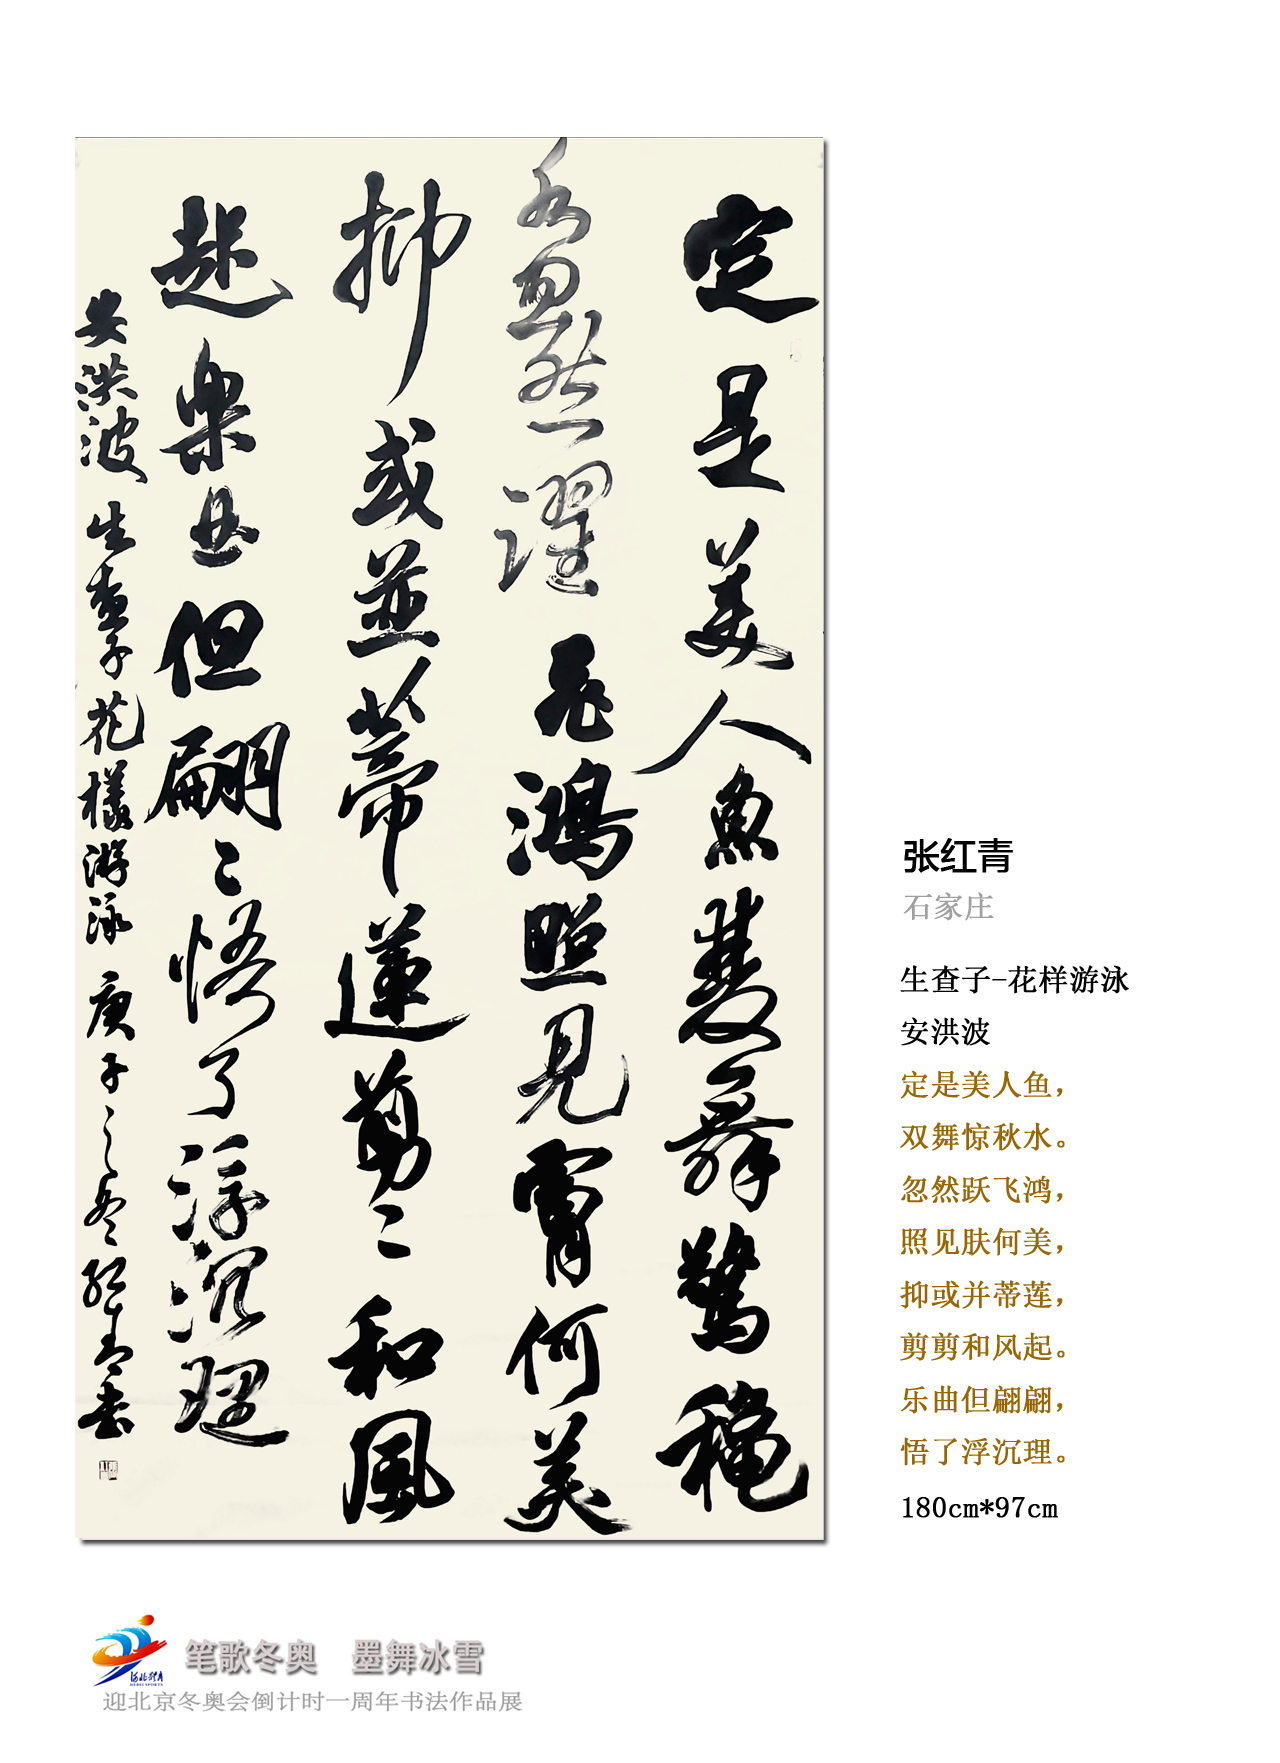 定是美人魚雙舞驚穐
水忽然躍飛鴻照見膚何美
抑或並蒂蓮剪〻和風
起樂曲但翩〻悟了浮沉理
安洪波生查子花樣游泳庚子之冬紅青书
张红青
石家庄
生查子-花样游泳
安洪波
定是美人鱼，
双舞惊秋水。
忽然跃飞鸿，
照见肤何美，
抑或并蒂莲，
剪剪和风起。
乐曲但翩翩，
悟了浮沉理。
180cm*97cm
笔歌冬奥 墨舞冰雪
河北体育
HEBEI SPORTS
迎北京冬奥会倒计时一周年书法作品展